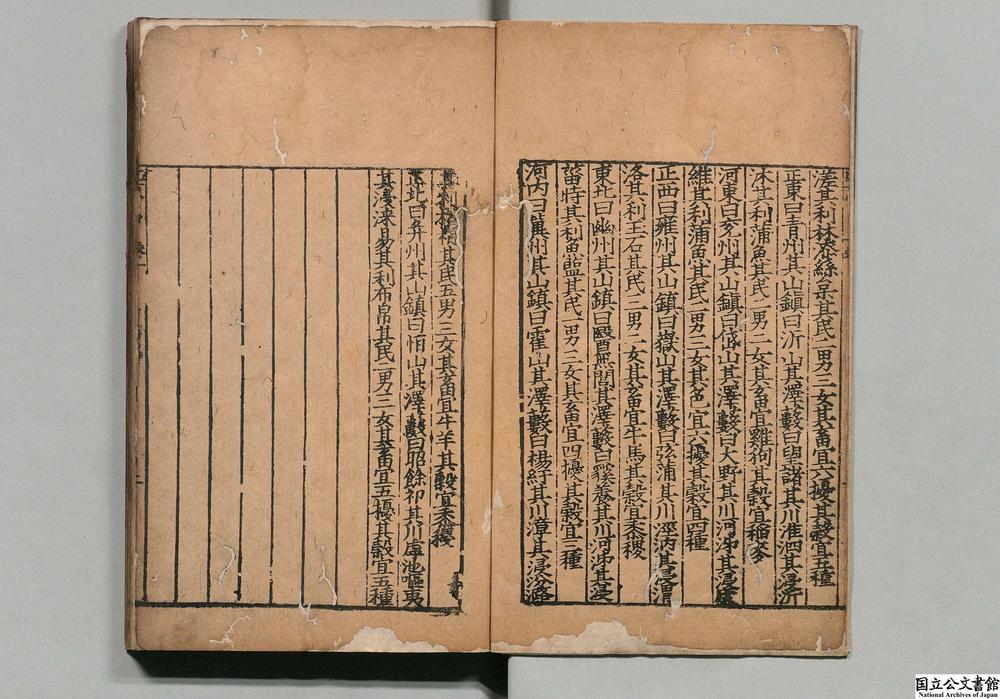 溠其利林漆絲枲其民二男三女其畜宜六擾其穀宜五種
正東曰青州其山鎮曰沂山其澤藪曰望諸其川淮泗其浸沂
沭其利蒲魚其民二男二女其畜宜雞狗其穀宜稻麥
河東曰兗州其山鎮曰岱山其澤藪曰大野其川河泲其浸盧
維其利蒲魚其民二男三女其畜宜六擾其穀宜四種
正西曰雍州其山鎮曰嶽山其澤藪曰弦蒲其川涇汭其浸渭
洛其利玉石其民三男二女其畜宜牛馬其穀宜黍稷
東北曰幽州其山鎮曰醫無閭其澤藪曰貕養其川河泲其浸
菑時其利魚鹽其民一男三女其畜宜四擾其穀宜三種
河內曰冀州其山鎮曰霍山其澤藪曰楊紆其川漳其浸汾潞
其利松柏其民五男三女其畜宜牛羊其穀宜黍稷
正北曰并州其山鎮曰恒山其澤藪曰昭餘祁其川虖池嘔夷
其浸淶易其利布帛其民二男三女其畜宜五擾其穀宜五種
国立公文書館
National Archives of Japan